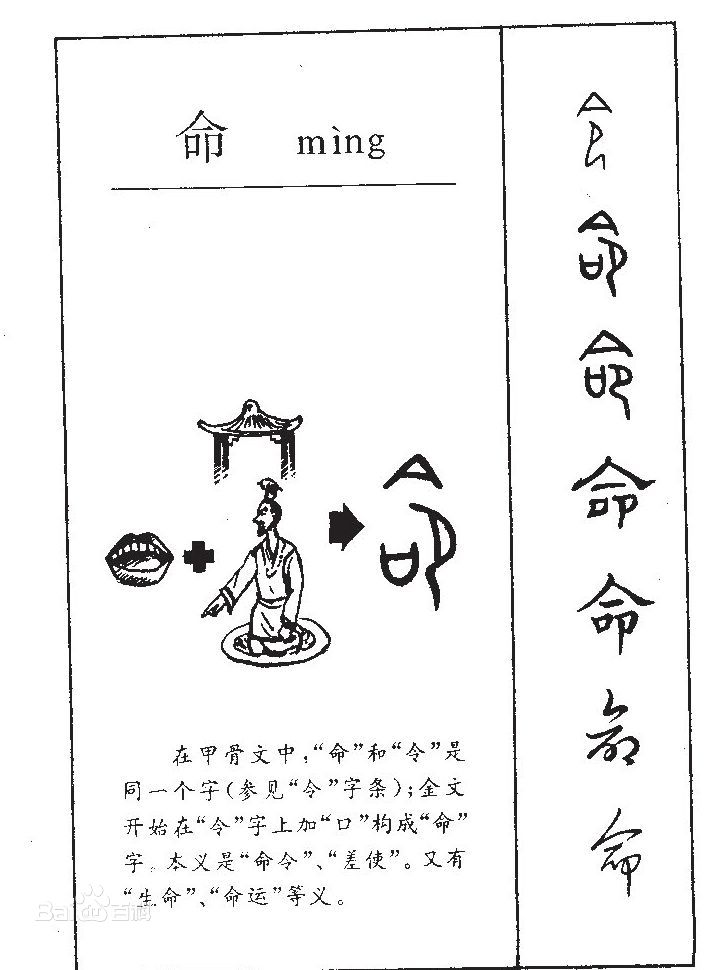 命 mìng
在甲骨文中，“命”和“令”是
同一个字（参见“令”字条）；金文
开始在“令”字上加“口”构成“命”
字。本义是“命令”、“差使”。又有
“生命”、“命运”等义。
Bai百科
命
命
命
命
命